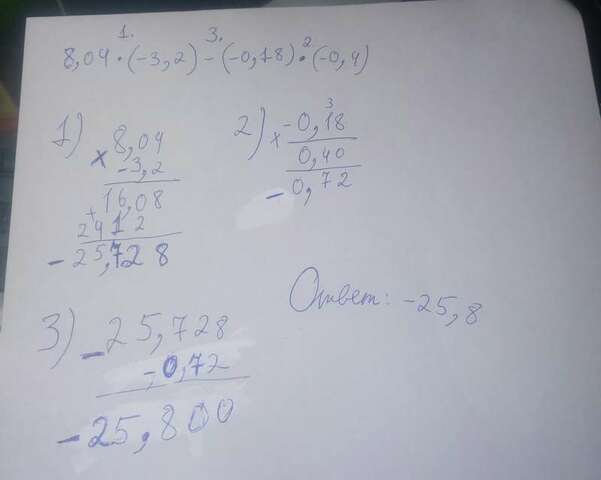 1. 3. 2
8,04 · (-3,2) - (-0,18) · (-0,4)
1) 8,04
× -3,2
16,08
+ 2412
- 25,728
2) 3
× -0,18
0,40
- 0,72
3) -25,728
-0,72
-25,800
Ответ: -25,8